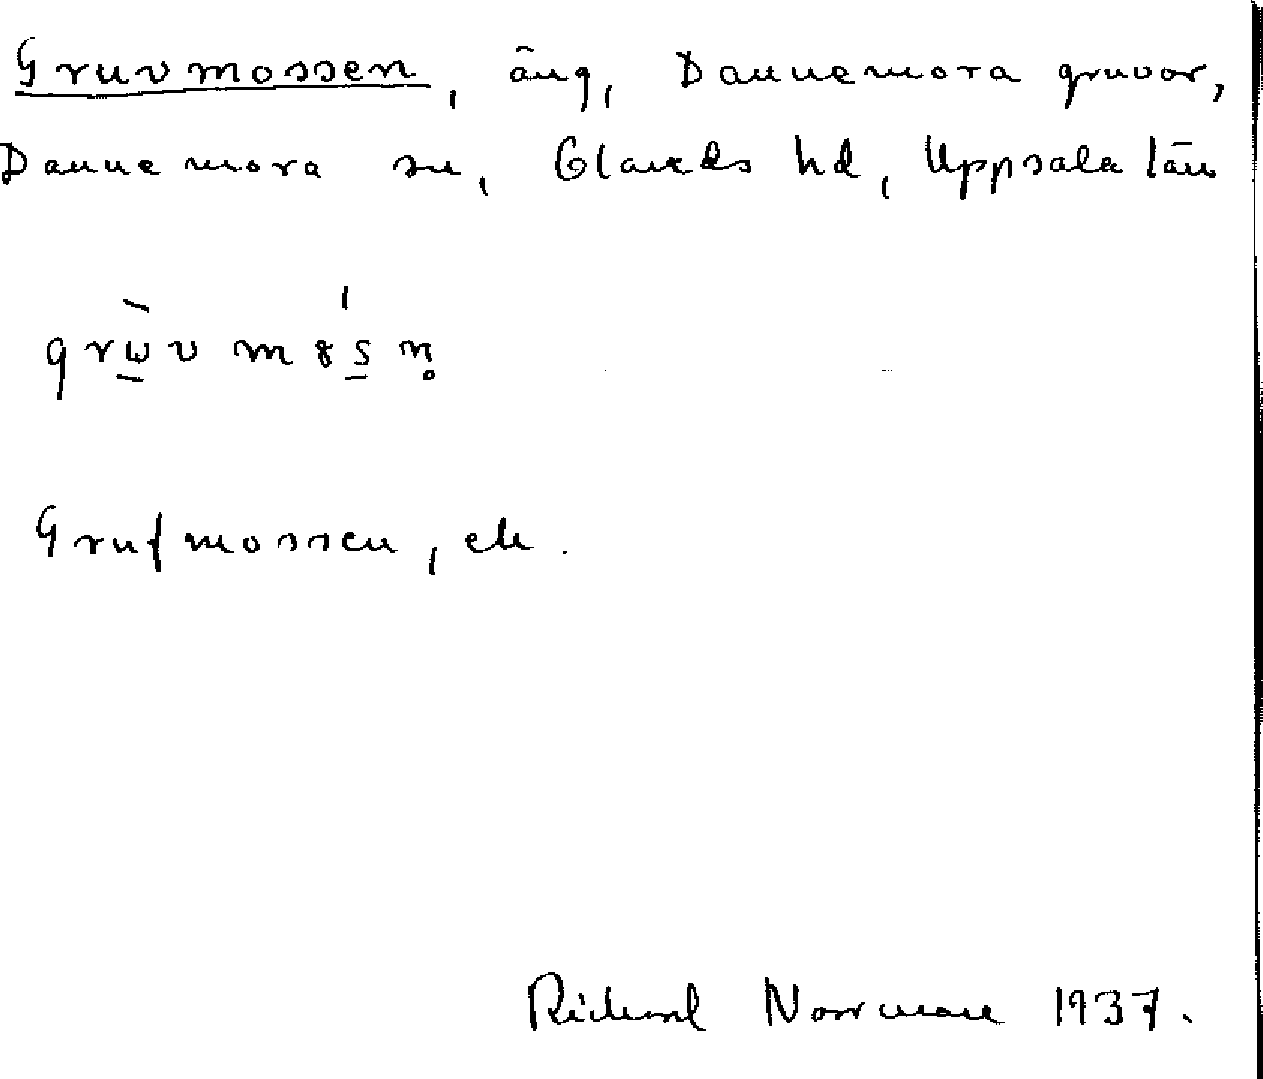 Gruvmossen, äng, Dannemora gruvor,
Dannemora sn, Olands hd, Uppsala län
grωv mɞsn̥
Grufmossen, ek.
Rickard Norrman 1937.